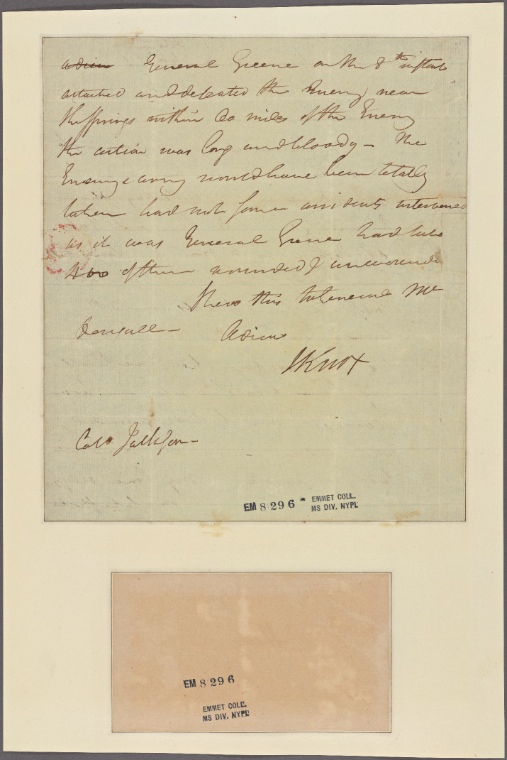 adieu General Greene on the 8th
attacked and defeated the Enemy near
the springs within 60 miles of the Enemy
the action was long and bloody – the
Enemys army would have been totally
taken had not some accidents intervened
as it was General Greene had
400 of them wounded &
Shew this to General Mc
Dougall – Adieu
HKnox
Colo Jackson –
EM 8296
EMMET COLL.
MS DIV. NYPL
EM 8296
EMMET COLL.
MS DIV. NYPL